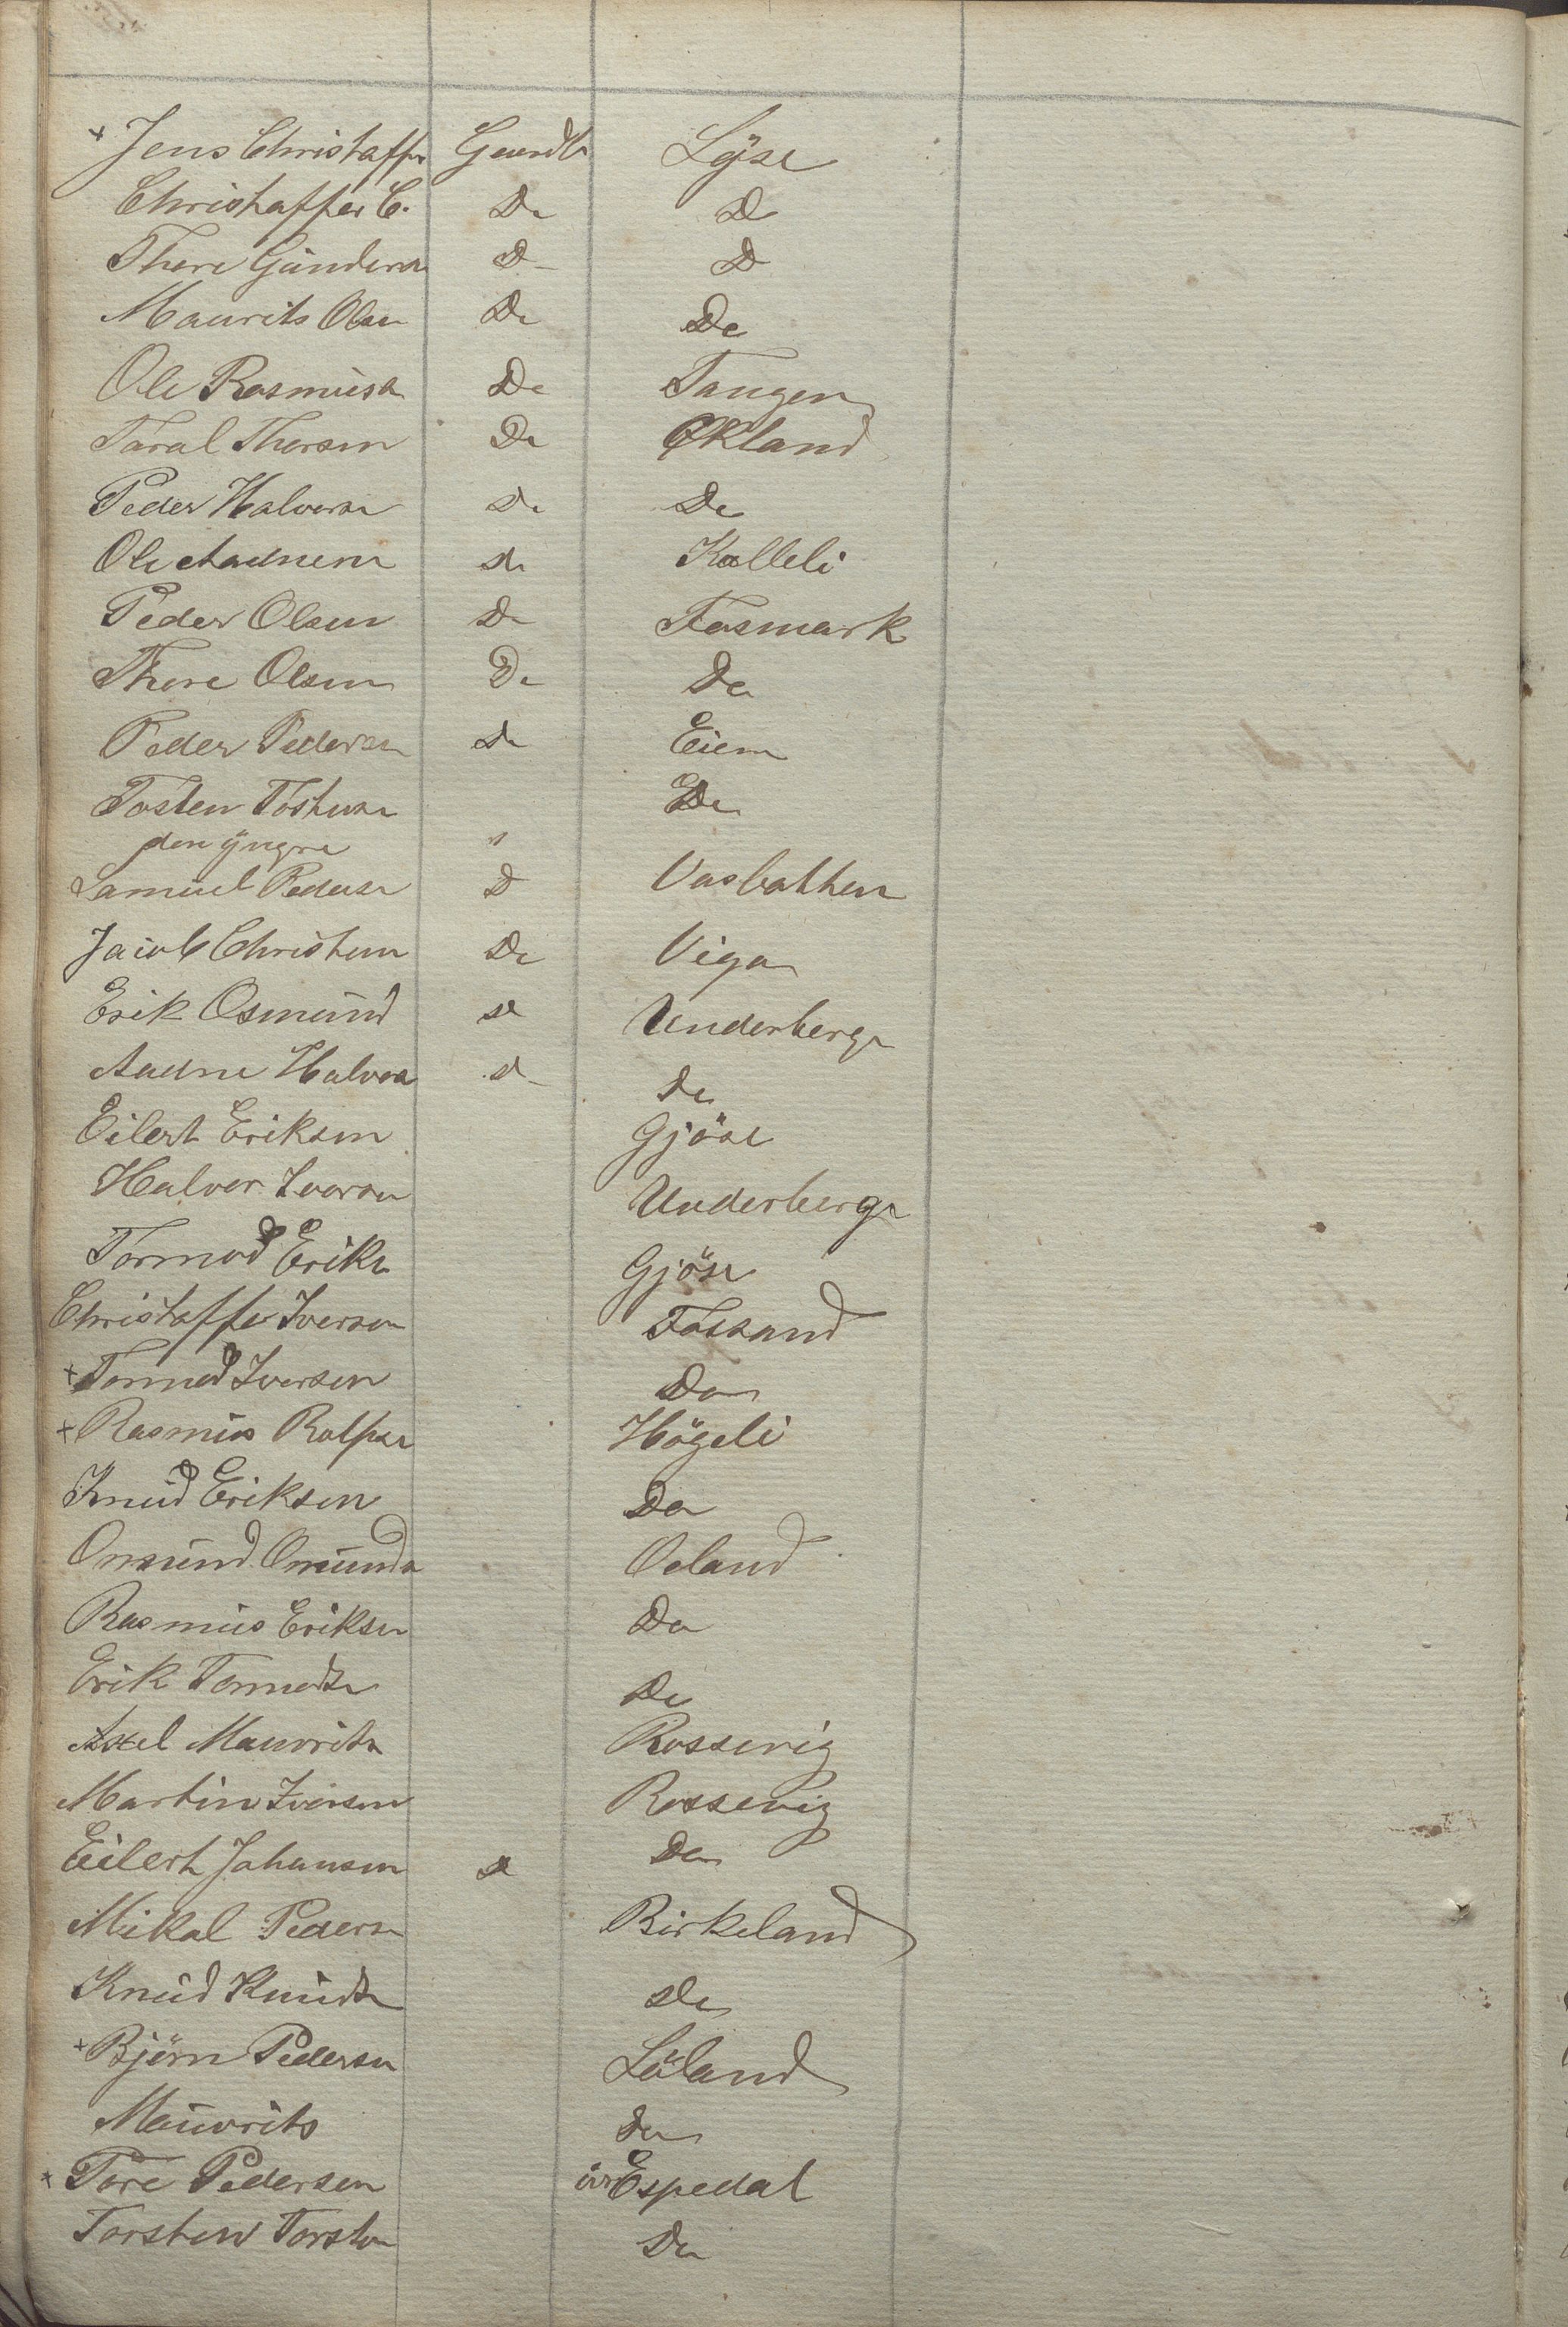 + Jens Christaffer Gaardb Lÿse
Christaffer C. Do Do
Thore Gunders Do Do
Maurits Olsen Do Do
Ole Rasmusn Do Tangen
Taral Thorsen Do Økland
Peder Halvorsn Do Do
Ole Aadnesn do Kalleli
Peder Olsen Do Fosmark
Thore Olsen Do Do
Peder Pedersen do Eiem
Tosten Tostensn Do
den ÿngre "
Samuel Pedersn D Vasbotten
Jacob Christensn Do Viga
Erik Osmund do Underberge
Aadne Halvors do do
Eilert Eriksen Gjöse
Halvor Iversen Underberge
Tormod Eriks Gjöse
Christaffer Iversen Fossand
+ Tormod Iversen Do
+ Rasmus Rolfsn Högeli
Knud Eriksen Do
Omund Omunds Oeland
Rasmus Eriksen Do
Erik Tormods Do
Axel Maurits Rossevig
Martin Iversen Rossevig
Eilert Johansen do Do
Mikal Peders Birkeland
Knud Knuds do
+ Bjørn Pedersen Löland
Maurits do
+ Tore Pedersen öv Espedal
Torsten Torsten Do